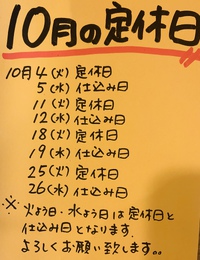 10月の定休日
10月4(火)定休日
5(水)仕込み日
11(火)定休日
12(水)仕込み日
18(火)定休日
19(水)仕込み日
25(火)定休日
26(水)仕込み日
※火よう日・水よう日は定休日と
仕込み日となります。
よろしくお願い致します。。